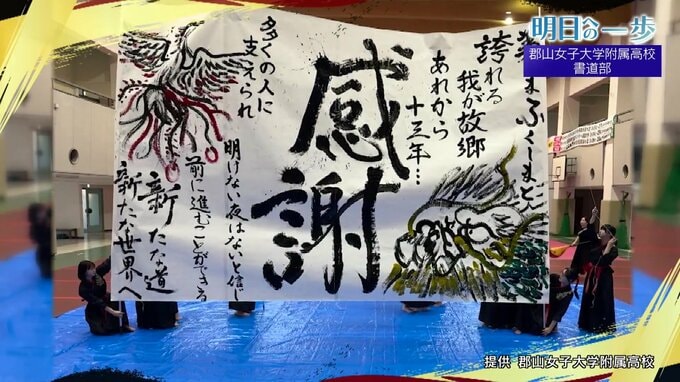 明日への一歩
郡山女子大学附属高校
書道部
ふくしまと
誇れる
我が故郷
あれから
十三年…
感謝
多くの人に
支えられ
明けない夜はないと信じ
前に進むことができる
新たな道
新たな世界へ
提供 郡山女子大学附属高校